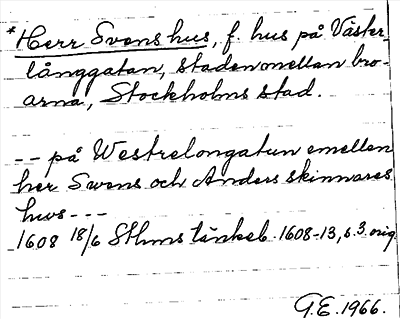 *Herr Svens hus, f. hus på Väster-
långgatan, staden mellan bro-
arna, Stockholms stad.
-- på Westrelongatun emellan
her Swens och Anders skinnares
hws ---
1608 18/6 Sthms tänkeb. 1608-13, s. 3. orig.
G.E. 1966.